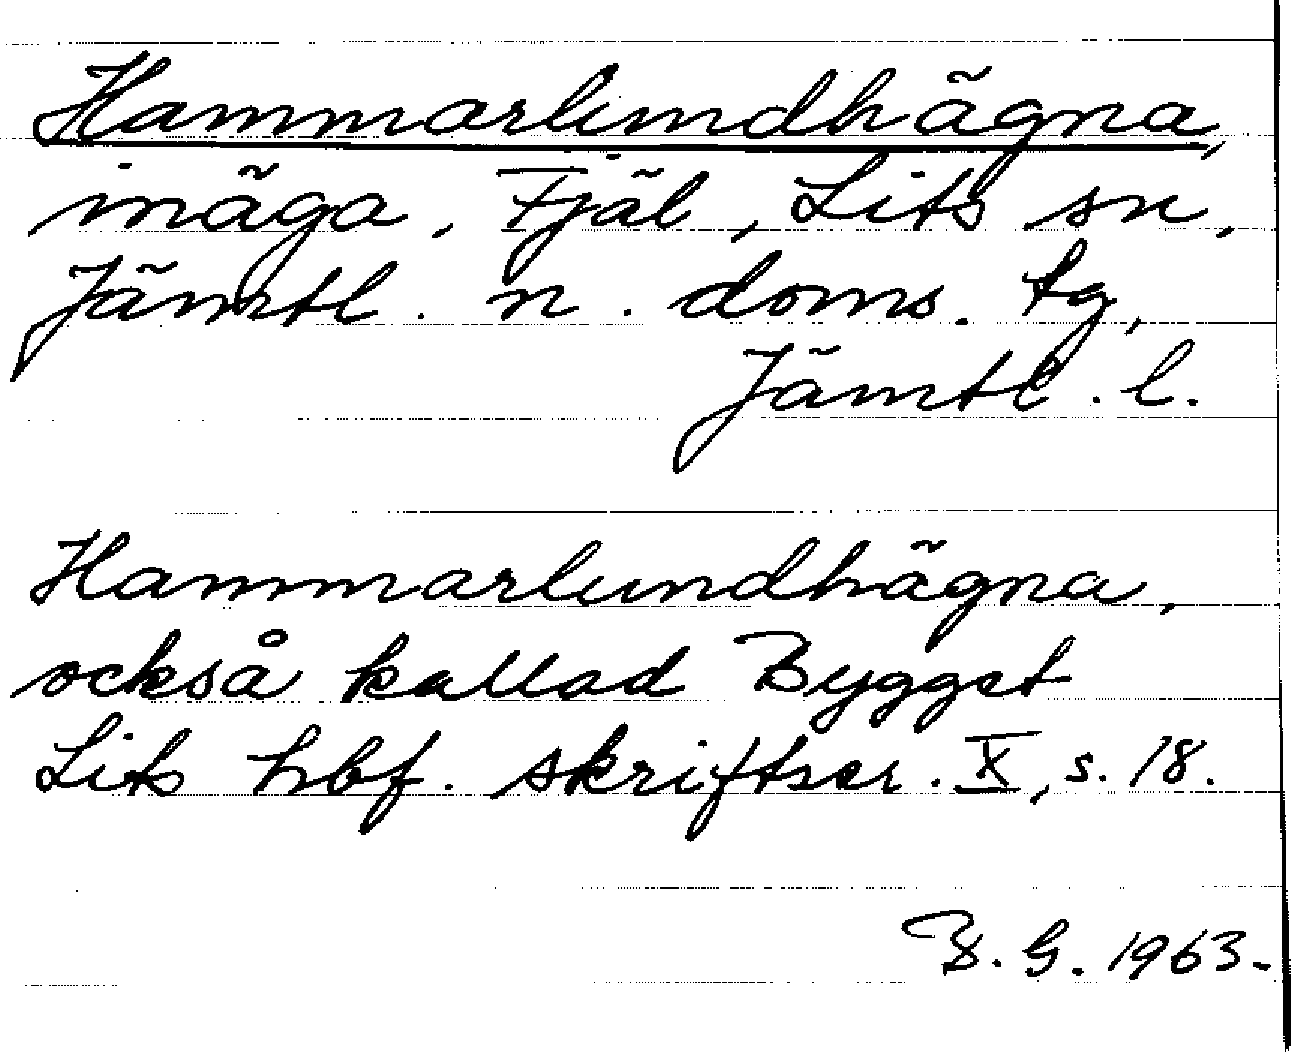 Hammarlundhägna,
inäga, Fjäl, Lits sn,
Jämtl. n. doms. tg,
Jämtl. l.
Hammarlundhägna,
också kallad Bygget
Lits hbf. skriftser. X, s. 18.
B. G. 1963.